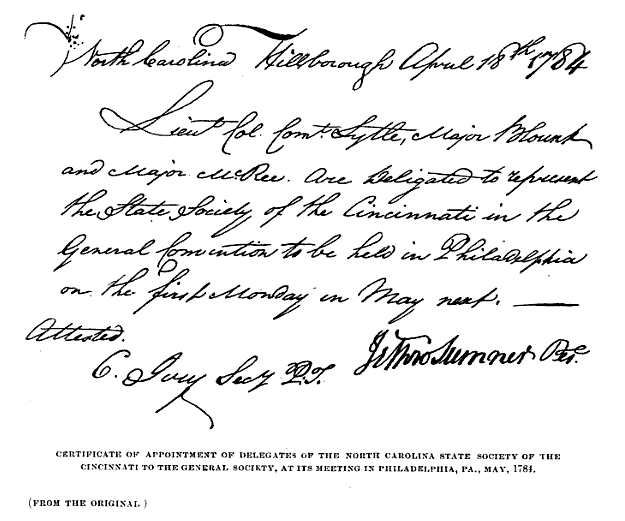 North Carolina Hillsborough April 18th 1784
Lieut Col. Comt. Lytle, Major Blount
and Major McRee. Are Deligated to represent
the State Society of the Cincinnati in the
General Convention to be held in Philadelphia
on the first Monday in May next. ———
Attested.
C. Ivey Secy P.T.
Jethro Sumner Pres.
CERTIFICATE OF APPOINTMENT OF DELEGATES OF THE NORTH CAROLINA STATE SOCIETY OF THE
CINCINNATI TO THE GENERAL SOCIETY, AT ITS MEETING IN PHILADELPHIA, PA., MAY, 1784.
(FROM THE ORIGINAL.)